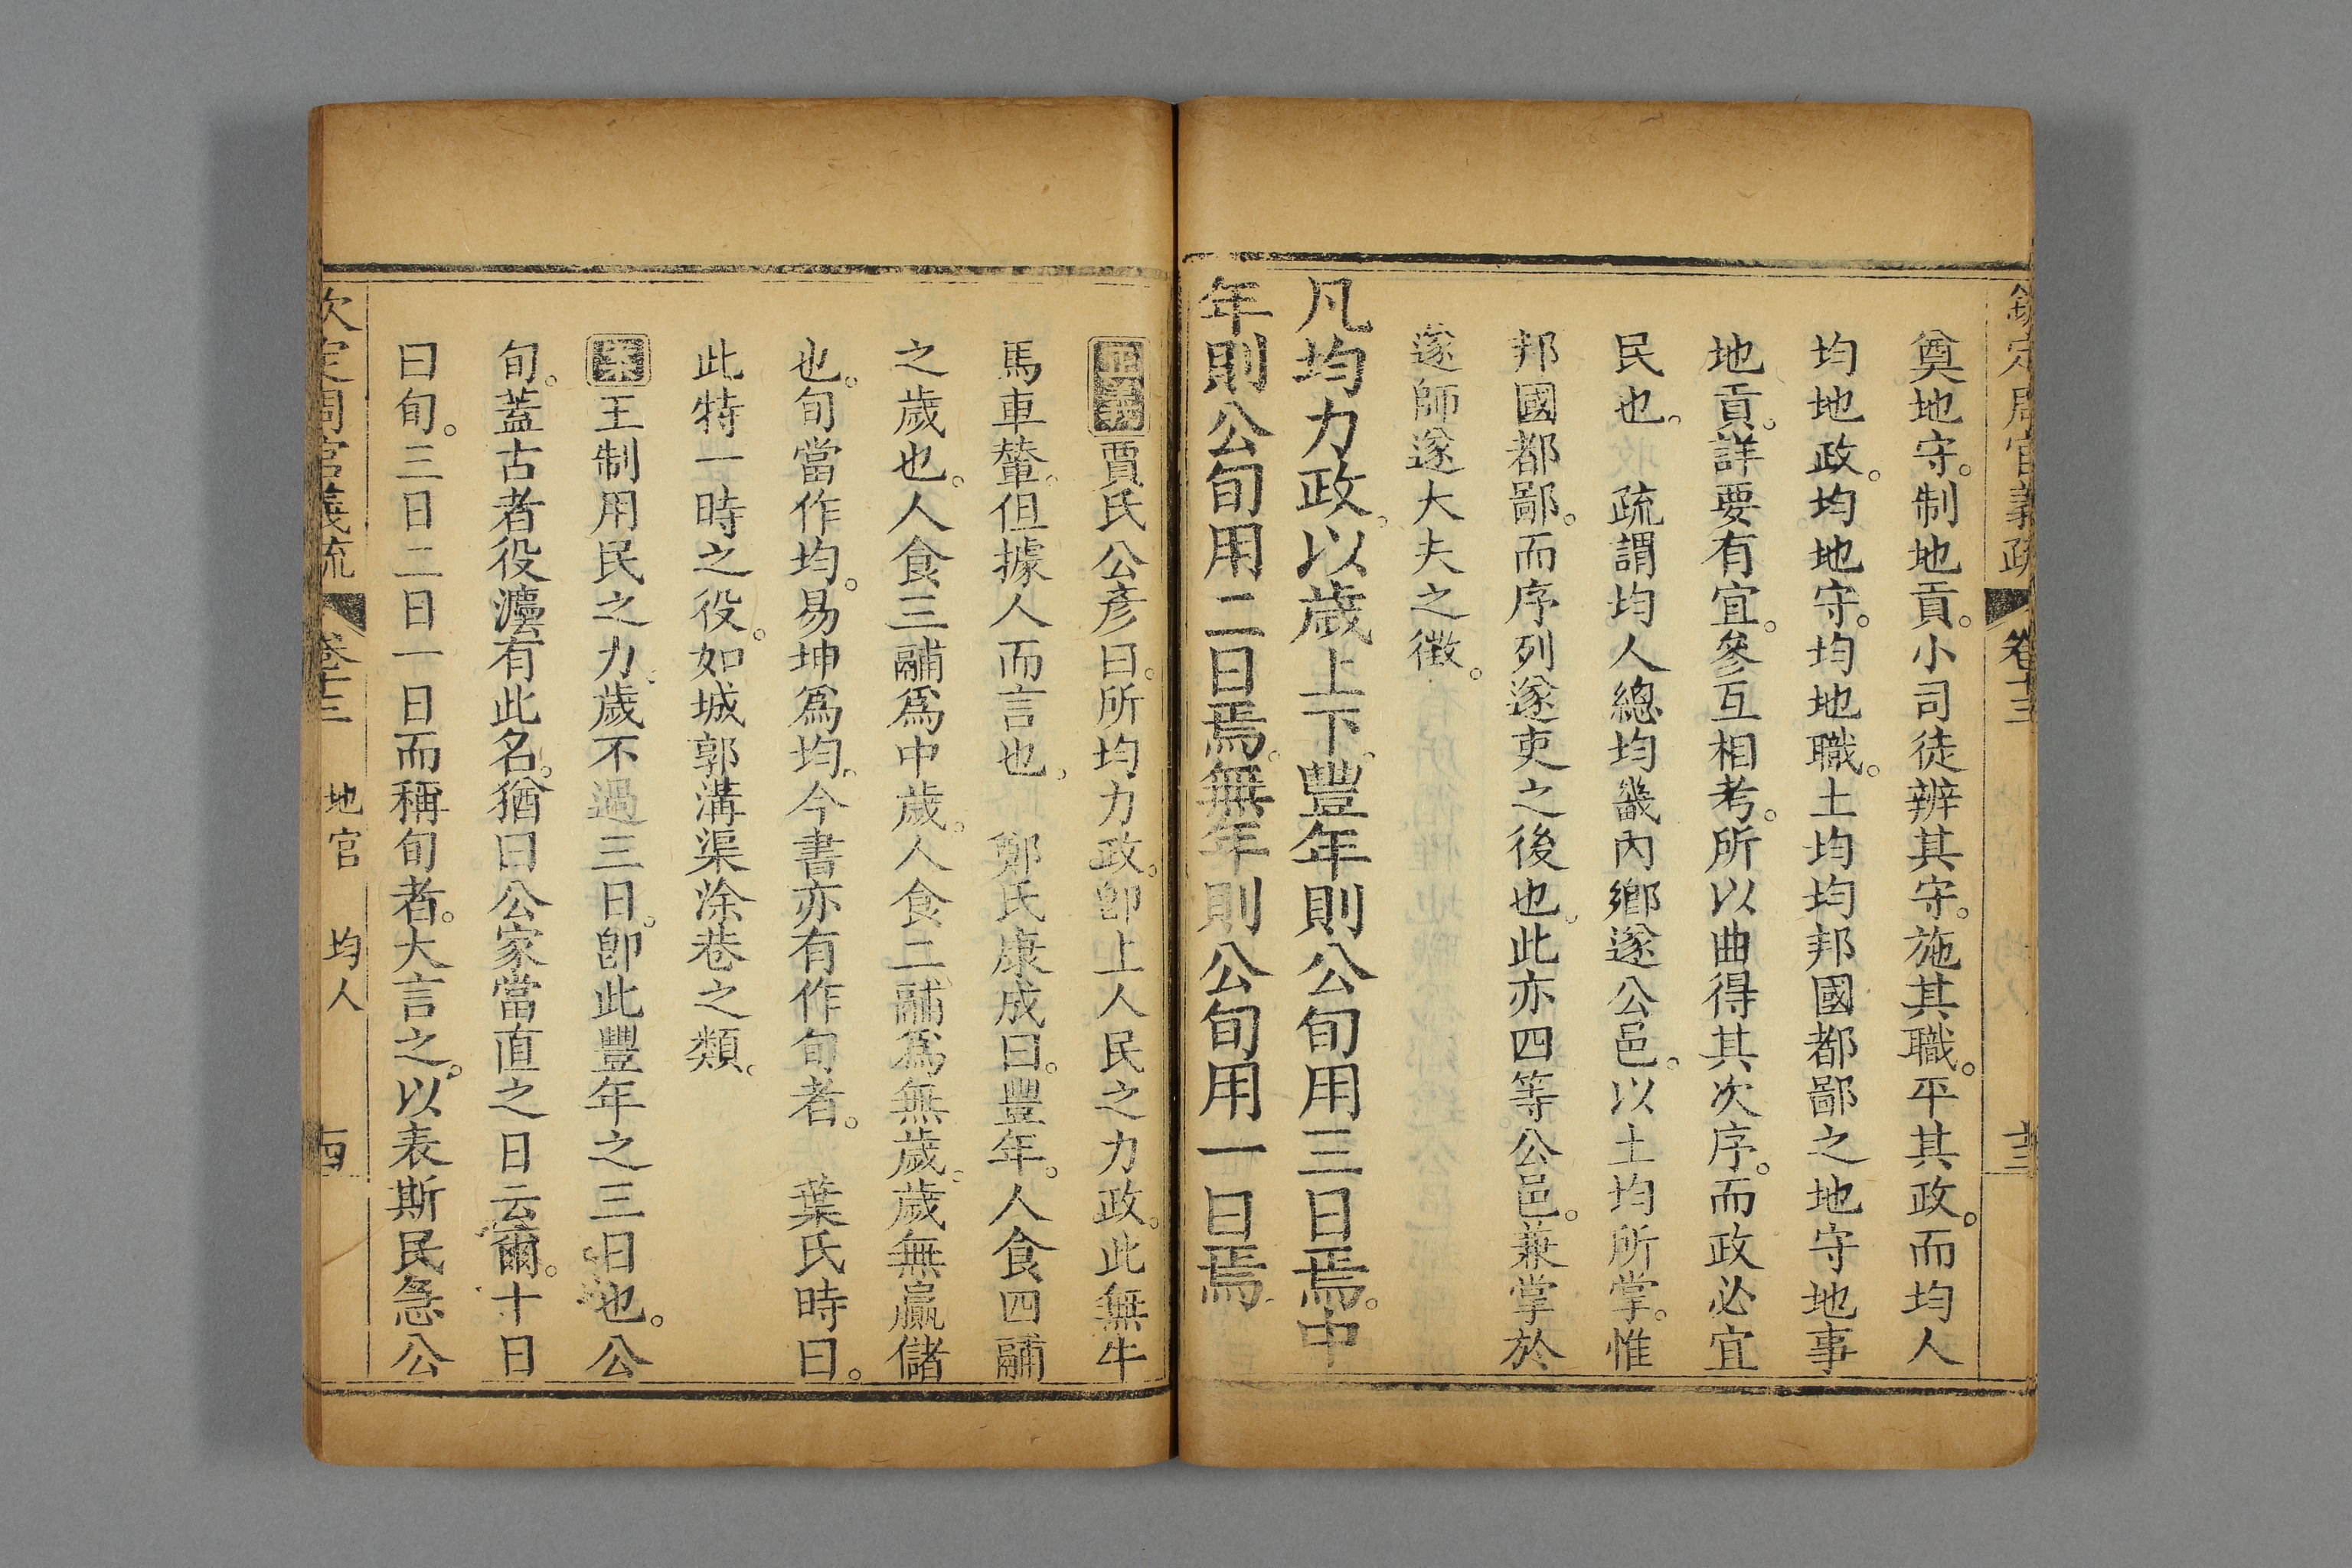 欽定周官義疏 卷十三 十三
奠地守。制地貢。小司徒辨其守。施其職。平其政。而均人
均地政。均地守。均地職。土均均邦國都鄙之地守地事
地貢。詳要有宜。參互相考。所以曲得其次序。而政必宜
民也。 疏謂均人總均畿內鄉遂公邑。以土均所掌。惟
邦國都鄙。而序列遂吏之後也。此亦四等公邑。兼掌於
遂師遂大夫之徵。
凡均力政。以歲上下。豐年則公旬用三日焉。中
年則公旬用二日焉。無年則公旬用一日焉。
正義賈氏公彥曰。所均力政。卽上人民之力政。此無牛
馬車輦。但據人而言也。 鄭氏康成曰。豐年。人食四鬴
之歲也。人食三鬴爲中歲。人食二鬴爲無歲。歲無贏儲
也。旬當作均。易坤爲均。今書亦有作旬者。 葉氏時曰。
此特一時之役。如城郭溝渠涂巷之類。
案王制用民之力。歲不過三日。卽此豐年之三日也。公
旬。蓋古者役灋有此名。猶曰公家當直之日云爾。十日
曰旬。三日二日一日而稱旬者。大言之。以表斯民急公
欽定周官義疏 卷十三 地官 均人 十四